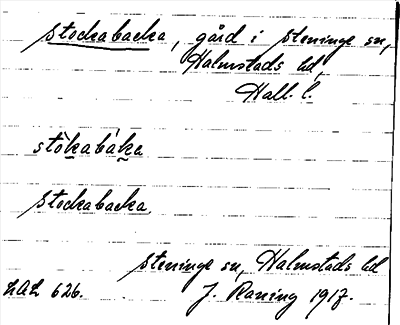 Stockabacka, gård i Steninge sn,
Halmstads hd,
Hall. l.
stòkabáka
Stockabacka
Steninge sn, Halmstads hd
LAL 626. J. Raning 1917.